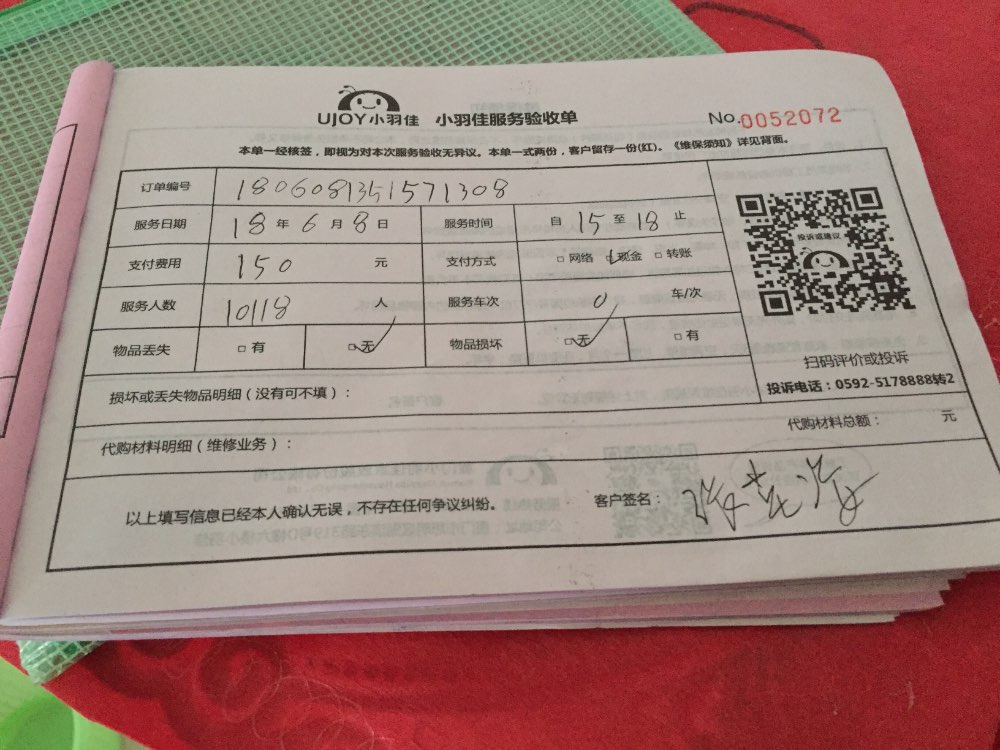 UJOY小羽佳 小羽佳服务验收单 No.0052072
本单一经核签，即视为对本次服务验收无异议。本单一式两份，客户留存一份(红)。《维保须知》详见背面。
订单编号 1806081351571308
服务日期 18 年 6 月 8 日 服务时间 自 15 至 18 止
支付费用 150 元 支付方式 □网络 □现金 □转账
服务人数 10118 人 服务车次 0 车/次
物品丢失 □有 □无 物品损坏 □无 □有
投诉或建议
扫码评价或投诉
投诉电话：0592-5178888转2
损坏或丢失物品明细（没有可不填）：
代购材料明细（维修业务）： 代购材料总额： 元
以上填写信息已经本人确认无误，不存在任何争议纠纷。 客户签名：